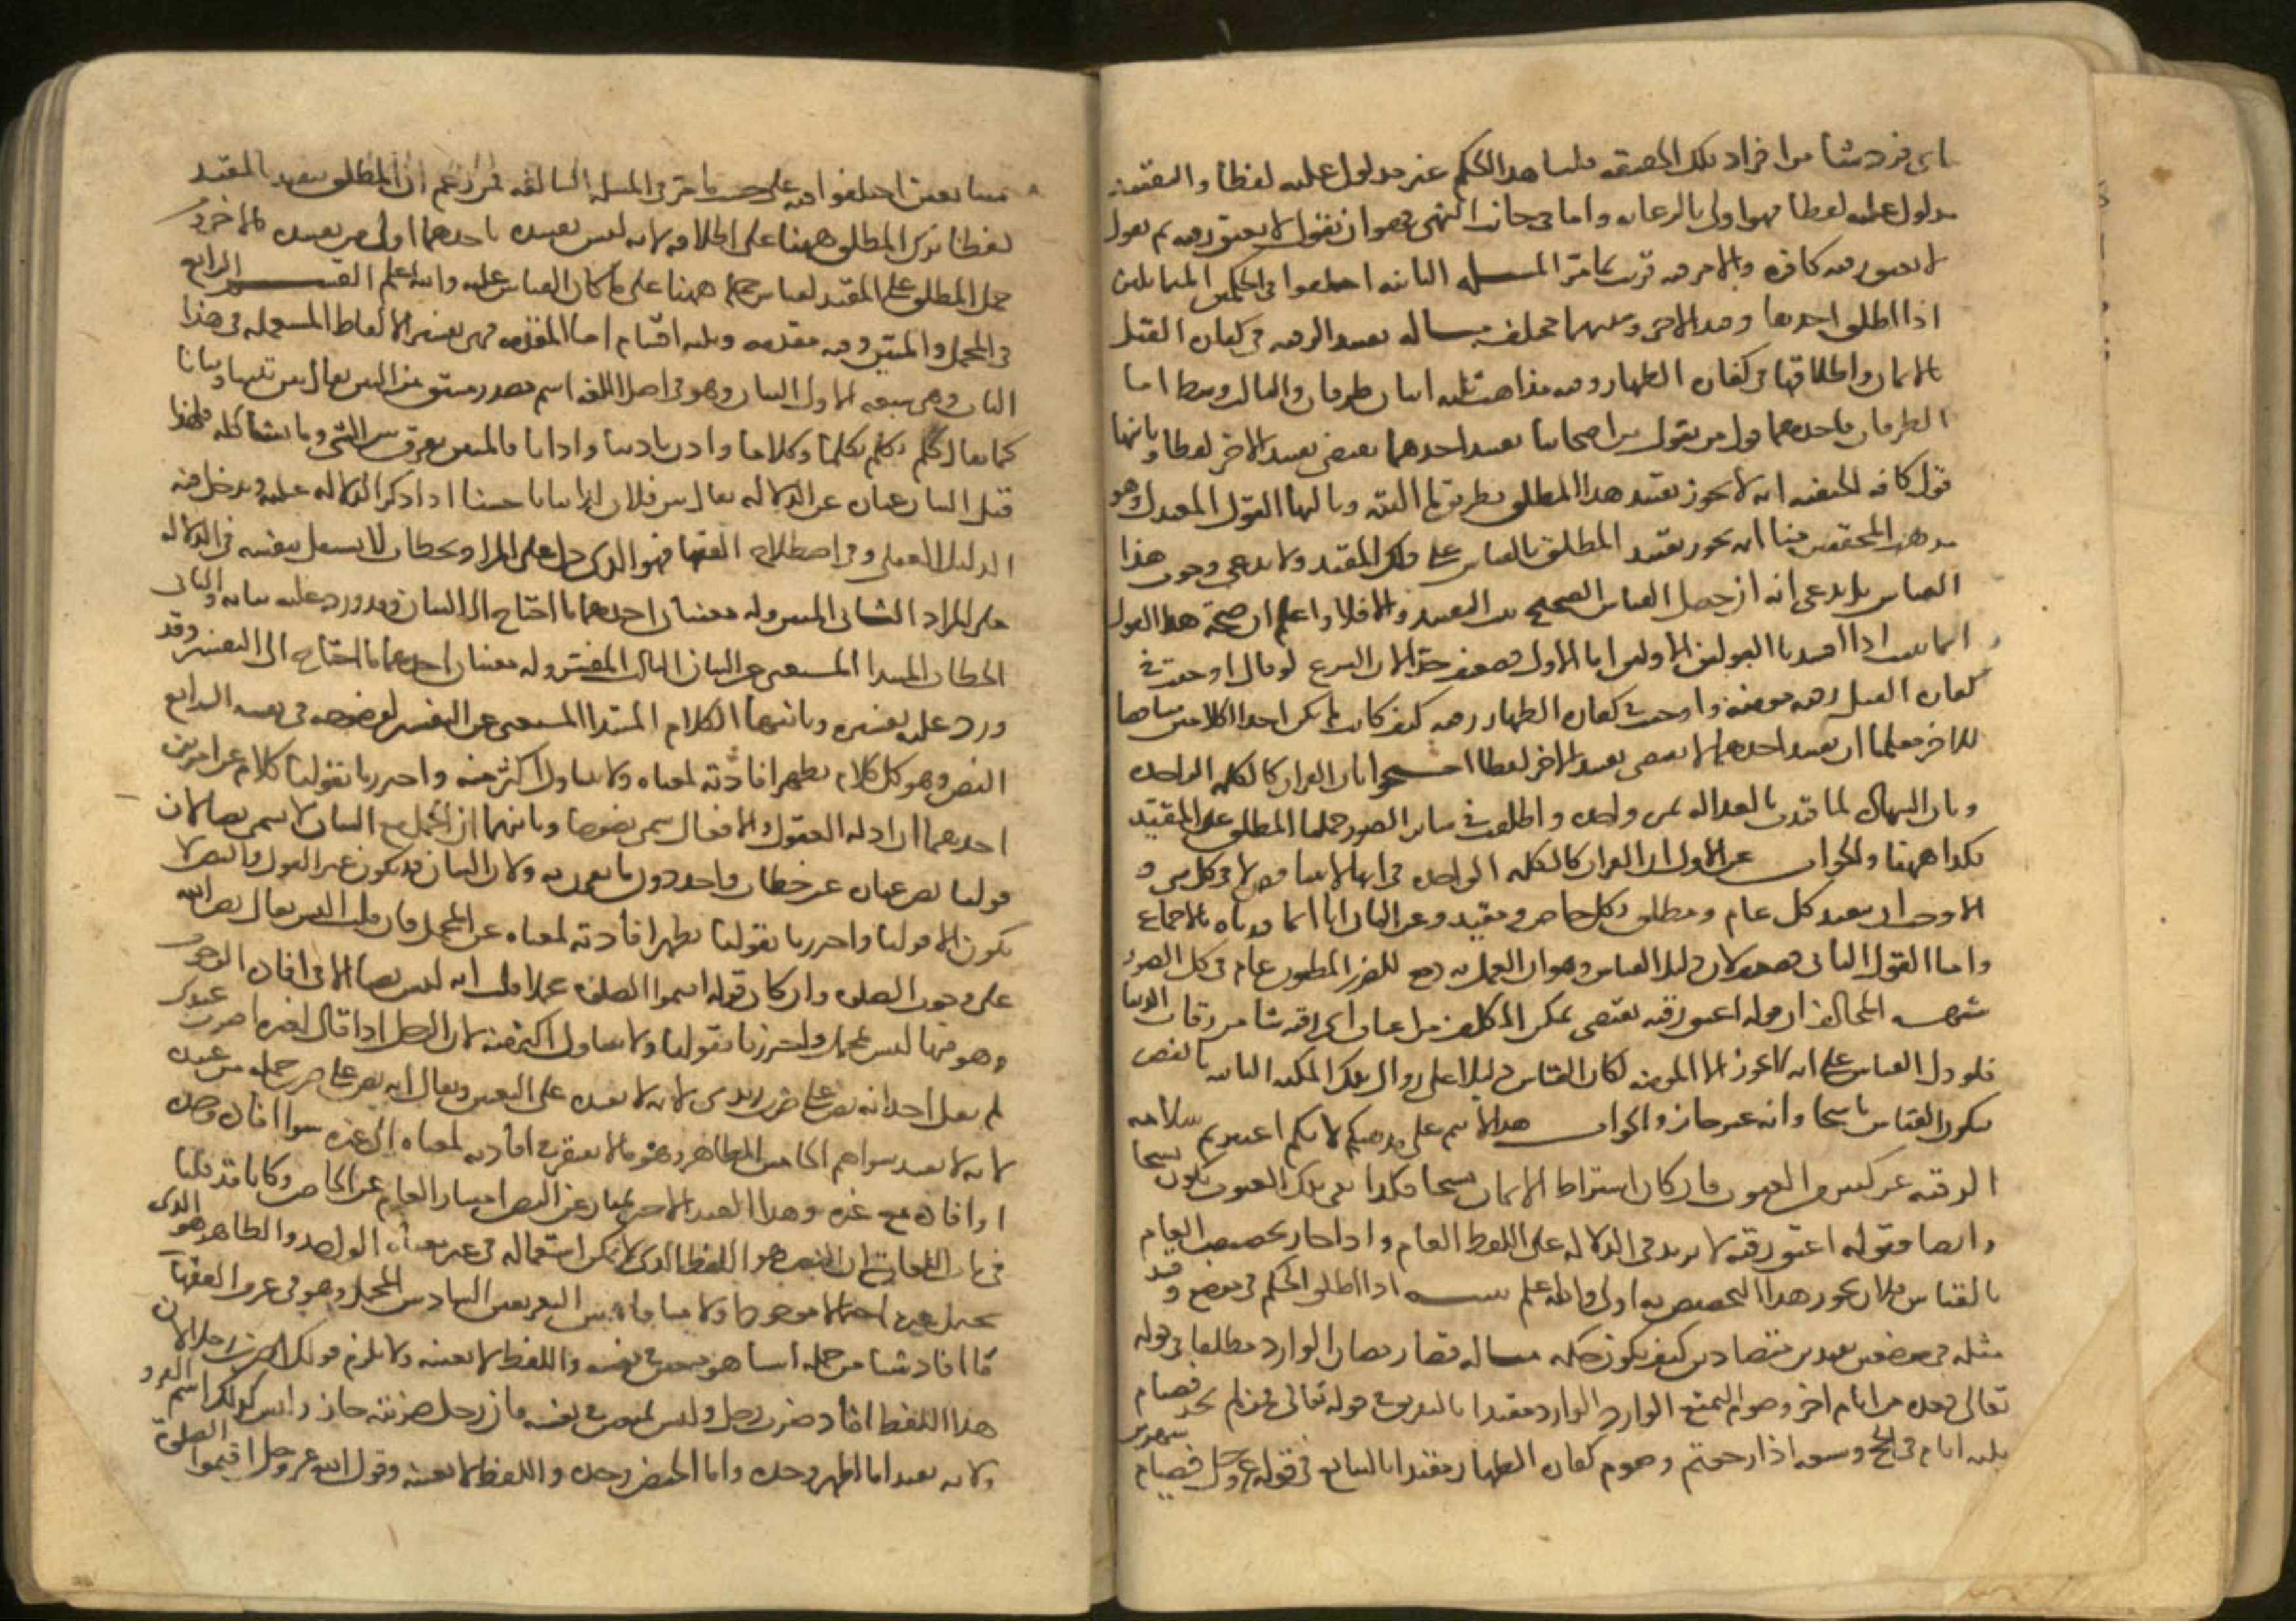 اى فرد شا من افراد تلك الحقيقه قلنا هذا الحكم غير مدلول عليه لفظا والتقييد
مدلول عليه لفظا فهو اولى بالرعايه واما فى جانب النهى فهو ان نقول لا تعتق رقبه ثم نقول
لا تعتق رقبه كافره والامر فيه قريب مما مر المسله الثانيه اختلفوا فى الحكمين المتماثلين
اذا اطلق احدهما وقيد الاخر وسببهما مختلف مثاله تقييد الرقبه فى كفاره القتل
بالايمان واطلاقها فى كفاره الظهار وفيه مذاهب ثلثه اثنان طرفان والثالث وسط اما
الطرفان فاحدهما قول من يقول من اصحابنا تقييد احدهما يقتضى تقييد الاخر لفظا وثانيها
قول كافه الحنفيه انه لا يجوز تقييد هذا المطلق بطريق ما البته وثالثها القول المعتدل وهو
مذهب المحققين منا انه يجوز تقييد المطلق بالقياس على ذلك المقيد ولا ندعى وجوب هذا
القياس بل ندعى انه ان حصل القياس الصحيح ثبت التقييد والا فلا واعلم ان صحة هذا القول
انما تثبت اذا افسدنا القولين الاولين اما الاول فضعيف جدا لان الشرع لو قال اوجبت فى
كفاره القتل رقبه مومنه واوجبت فى كفاره الظهار رقبه كيف كانت لم يكن احد الكلامين مناقضا
للاخر فعلمنا ان تقييد احدهما لا يقتضى تقييد الاخر لفظا احتجوا بان القران كالكلمه الواحده
وبان الشهاده لما قيدت بالعداله مره واحده واطلقت فى ساير الصور حملنا المطلق على المقيد
فكذا ههنا والجواب عن الاول ان القران كالكلمه الواحده فى انها لا تتناقض لا فى كل شى و
الا وجب ان يتقيد كل عام ومطلق بكل خاص ومقيد وعن الثانى انا انما قيدناه بالاجماع
واما القول الثانى فضعيف لان دليل القياس وهو ان العمل به دفع للضرر المظنون عام فى كل الصور
شبهه المخالف ان قوله اعتق رقبه يقتضى تمكن المكلف من اعتاق اى رقبه شا من رقاب الدنيا
فلو دل القياس على انه لا يجوز الا المومنه لكان القياس دليلا على زوال تلك المكنه الثابته بالنص
فيكون القياس ناسخا وانه غير جايز والجواب هذا لا يتم على مذهبكم لانكم اعتبرتم سلامه
الرقبه عن كثير من العيوب فان كان اشتراط الايمان نسخا فكذا نفى تلك العيوب يكون نسخا
وايضا فقوله اعتق رقبه لا يزيد فى الدلاله على اللفظ العام واذا جاز تخصيص العام
بالقياس فلان يجوز هذا التخصيص به اولى والله اعلم تنبيه اذا اطلق الحكم فى موضع وقيد
مثله فى موضعين بقيدين متضادين كيف يكون حكمه مثاله قضا رمضان الوارد مطلقا فى قوله
تعالى فعده من ايام اخر وصوم التمتع الوارد الوارد مقيدا بالتفريق فى قوله تعالى فمن لم يجد فصيام
ثلثه ايام فى الحج وسبعه اذا رجعتم وصوم كفاره الظهار مقيدا بالتتابع فى قوله عز وجل فصيام شهرين
متتابعين اختلفوا فيه على حسب ما مر فى المسله السالفه فمن زعم ان المطلق يتقيد بالمقيد
لفظا ترك المطلق ههنا على اطلاقه لانه ليس تقييده باحدهما اولى من تقييده بالاخر ومن
حمل المطلق على المقيد لقياس حمله ههنا على ما كان القياس عليه والله اعلم القسم الرابع
فى المجمل والمبين وفيه مقدمه وثلثه اقسام اما المقدمه فهى تفسير الالفاظ المستعمله فى هذا
الباب وهى سبعه الاول البيان وهو فى اصل اللغه اسم مصدر مشتق من التبيين يقال بين تبيينا وبيانا
كما يقال كلم يكلم تكليما وكلاما واذن تاذينا واذانا فالمبين يفرق بين الشى وما يشاكله فلهذا
قيل البيان عباره عن الدلاله يقال بين فلان كذا بيانا حسنا اذا ذكر الدلاله عليه ويدخل فيه
الدليل العقلى وفى اصطلاح الفقها فهو الذى دل على المراد بخطاب لا يستقل بنفسه فى الدلاله
على المراد الثانى المبين وله معنيان احدهما ما احتاج الى البيان وقد ورد عليه بيانه والثانى
الخطاب المبتدا المستغنى عن البيان الثالث المفسر وله معنيان احدهما ما احتاج الى التفسير وقد
ورد عليه تفسيره وثانيهما الكلام المبتدا المستغنى عن التفسير لوضوحه فى نفسه الرابع
النص وهو كل كلام يظهر افادته لمعناه ولا يتناول اكثر منه واحترزنا بقولنا كلام عن امرين
احدهما ان ادله العقول والافعال لا تسمى نصوصا وثانيهما ان المجمل مع البيان لا يسمى نصا لان
قولنا نص عباره عن خطاب واحد دون ما يقرن به ولان البيان قد يكون غير القول والنص لا
يكون الا قولنا واحترزنا بقولنا يظهر افادته لمعناه عن المجمل فان قلت اليس يقال نص الله
على وجوب الصلوه وان كان قوله اقيموا الصلوه مجملا قلت انه ليس نصا الا فى افاده الوجوب
وهو فيها ليس بمجمل واحترزنا بقولنا ولا يتناول اكثر منه لان الرجل اذا قال لغيره اضرب عبيدى
لم يقل احد انه نص على ضرب زيد لانه لا يفيده على التعيين ويقال انه نص على ضرب جمله من عبيده
لانه لا يفيد سواهم الخامس الظاهر وهو ما لا يفتقر فى افادته لمعناه الى غيره سوا افاده وحده
او افاده مع غيره وهذا القيد الاخير يمتاز عن النص امتياز العام عن الخاص وكنا قد قلنا
فى باب اللغات ان النص هو اللفظ الذى لا يمكن استعماله فى غير معناه الواحد والظاهر هو الذى
يحتمل غيره احتمالا مرجوحا ولا منافاه بين التعريفين السادس المجمل وهو فى عرف الفقها
ما افاد شيا من جمله اشيا هو متعين فى نفسه واللفظ لا يعينه ولا يلزم قولك اضرب رجلا لان
هذا اللفظ افاد ضرب رجل وليس بمتعين فى نفسه فاى رجل ضربته جاز وليس كذلك اسم القرو
لانه يفيد اما الطهر وحده واما الحيض وحده واللفظ لا يعينه وقول الله عز وجل اقيموا الصلوة